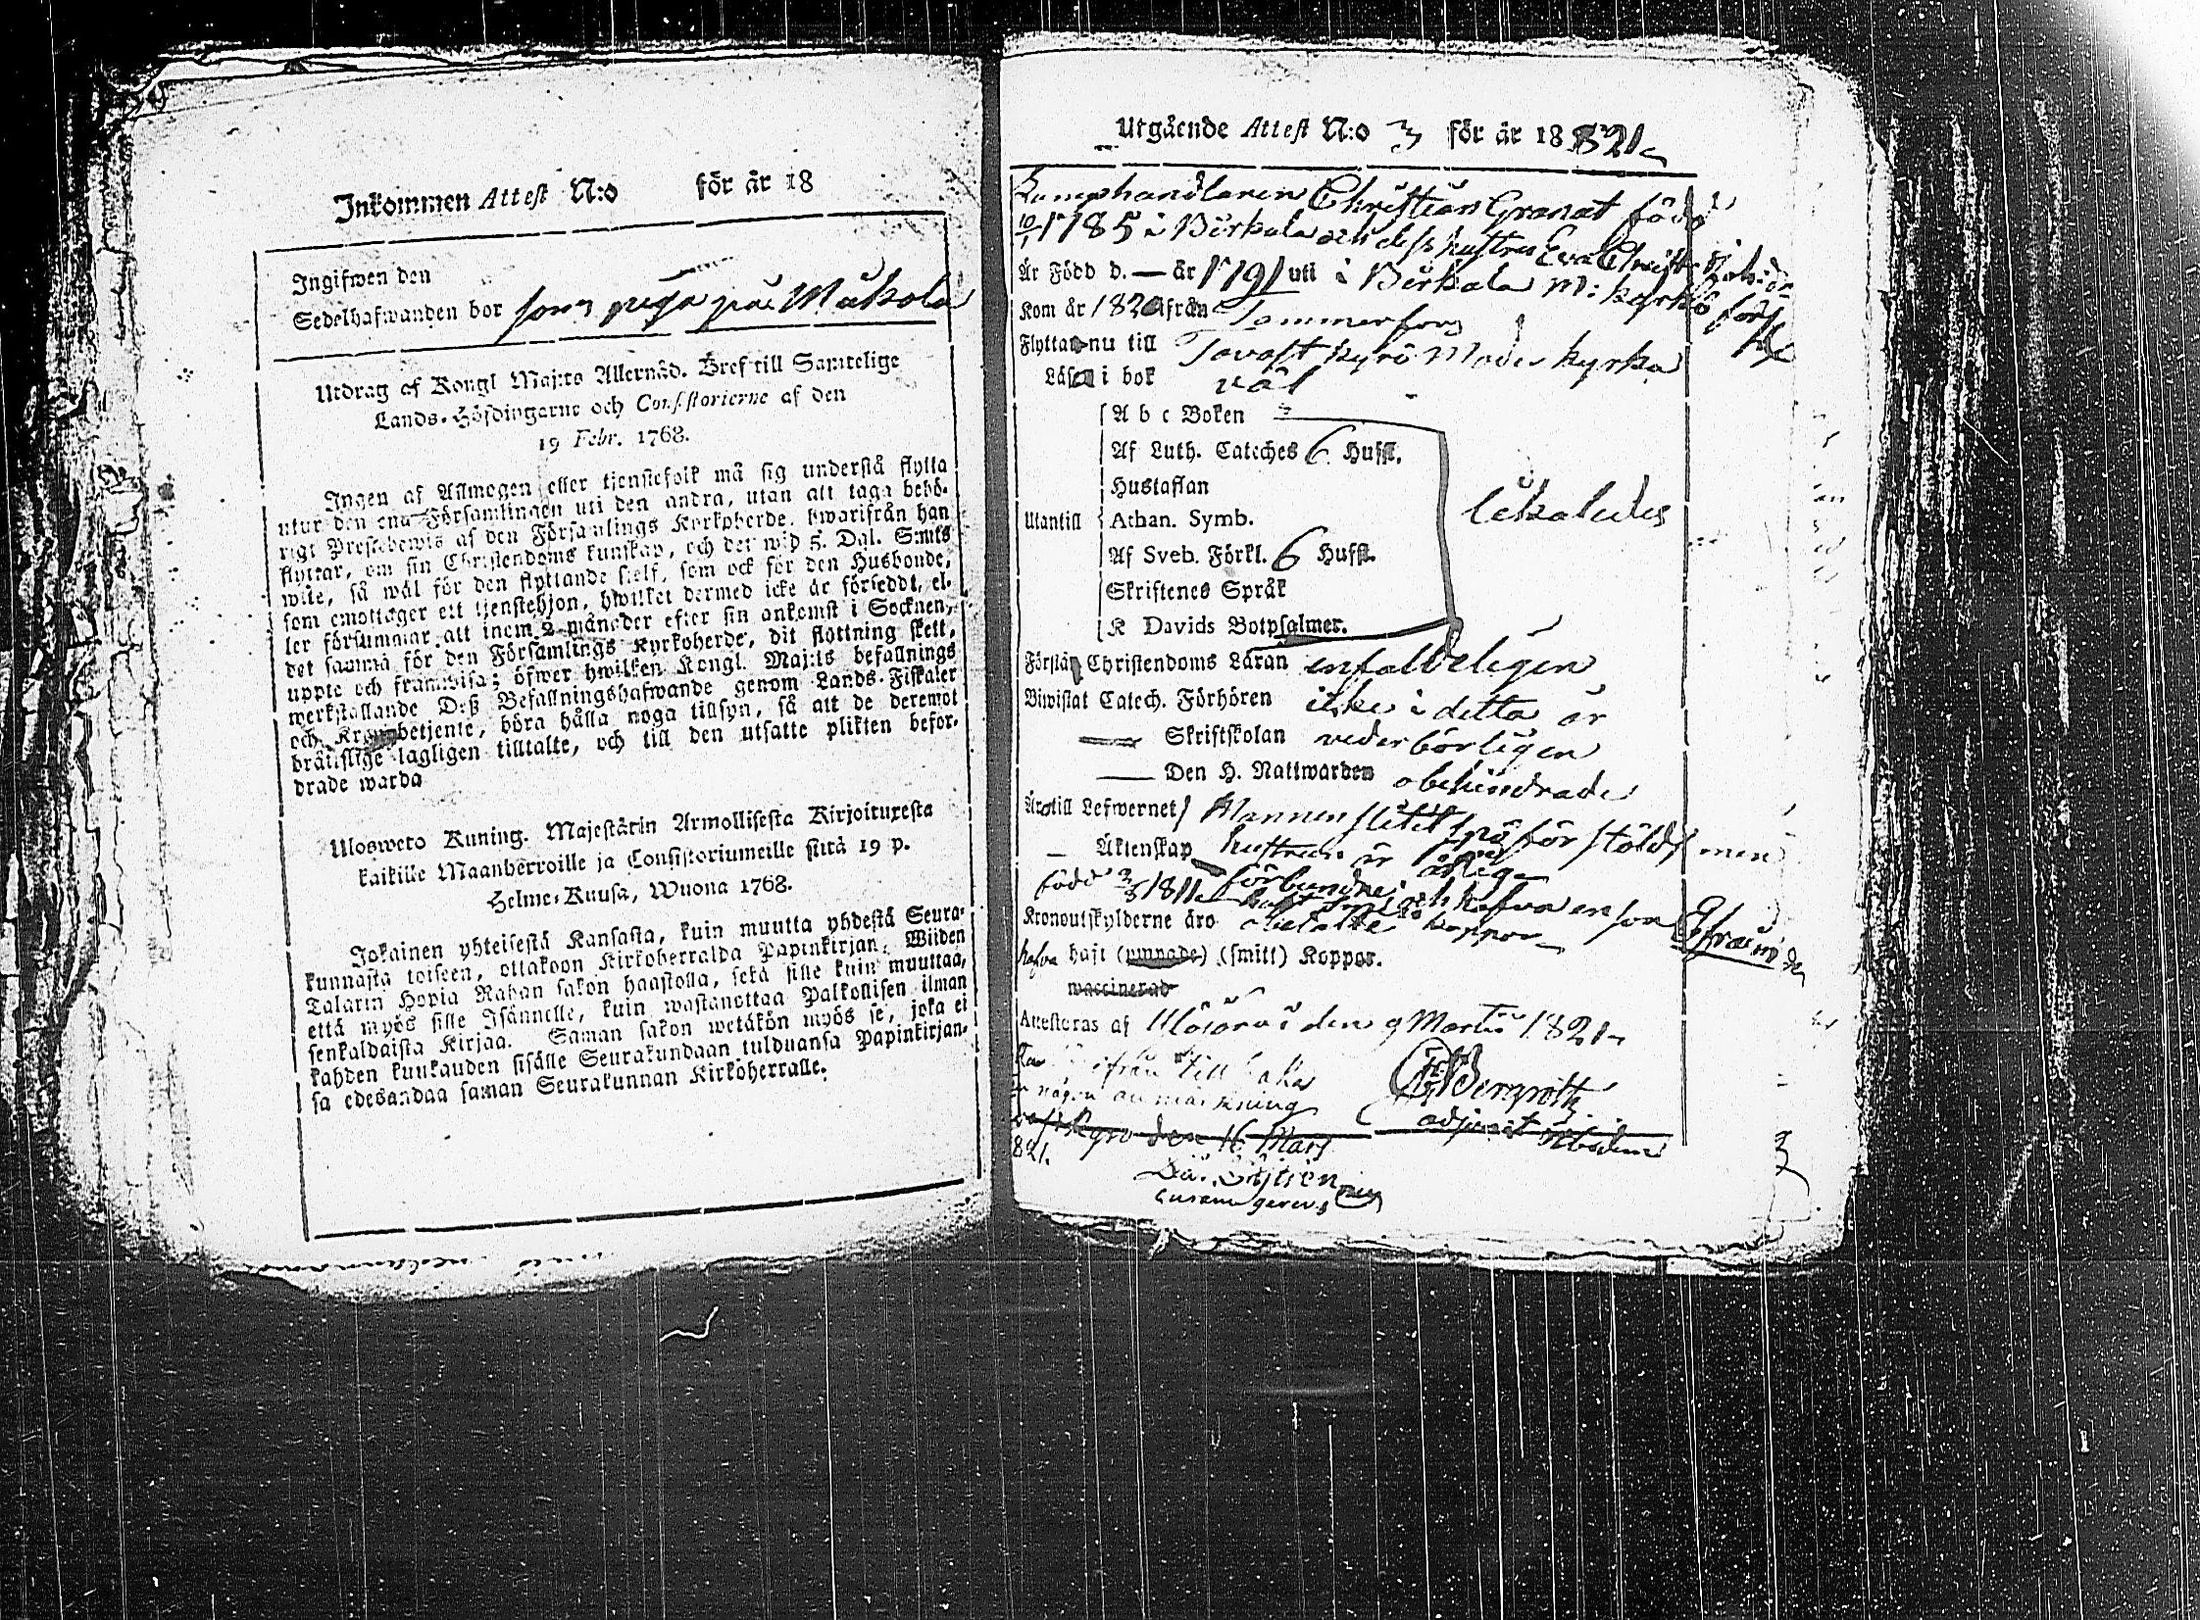 Inkommen Attest N:o för år 18
Ingifwen den
Sedelhafwanden bor som piga på Mukola
Utdrag af Kongl Maj:ts Allernåd. Bref till Samtelige
Lands-Höfdingarne och Consistorierne af den
19 Febr. 1768.
Ingen af Allmogen eller tjenstefolk må sig understå flytta
utur den ena Församlingen uti den andra, utan att taga behö-
rigt Prestebewis af den Församlings Kyrkoherde, hwarifrån han
flyttar, om sin Christendoms kunskap, och det wid 5. Dal. S:mts
wite, så wäl för den flyttande sielf, som ock för den Husbonde,
som emottager ett tjenstehjon, hwilket dermed icke är försedt, el-
ler försummar att inom 2 månader efter sin ankomst i Socknen,
det samma för den Församlings Kyrkoherde, dit flyttning skett,
uppte och framwisa; öfwer hwilken Kongl. Maj:ts befallnings
werkställande Deß Befallningshafwande genom Lands-Fiskaler
och Kronobetjente, böra hålla noga tillsyn, så att de deremot
brättslige lagligen tilltalte, och till den utsatte plikten befor-
drade warda
Ulosweto Kuning. Majestätin Armollisesta Kirjoituxesta
kaikille Maanherroille ja Consistoriumeille siitä 19 p.
Helme-Kuusa, Wuona 1768.
Jokainen yhteisestä Kansasta, kuin muutta yhdestä Seura-
kunnasta toiseen, ottakoon Kirkoherralda Papinkirjan, Wiiden
Talarin Hopia Rahan sakon haastolla, sekä sille kuin muuttaa,
että myös sille Isännelle, kuin wastanottaa Palkollisen ilman
senkaldaista Kirjaa. Saman sakon wetäkön myös se, joka ei
kahden kuukauden sisälle Seurakundaan tulduansa Papinkirjan-
sa edesandaa saman Seurakunnan Kirkoherralle.
Utgående Attest N:o 3 för år 18 1821
Lumphandlaren Christian Granat född
10/1 1785 i Birkala och dess hustru Eva Christ.
Är Född d. — år 1791 uti i Birkala M: kyrko
Kom år 1820 från Tammerfors
Flytta nu till Tavastkyro Moder kyrka
Läsa i bok väl
A b c Boken
Af Luth. Catches 6 Hufst.
Hustaflan
Utantill Athan. Symb. likaledes
Af Sveb. Förkl. 6 Hufst.
Skriftenes Språk
K Davids Botpsalmer.
Förstå Christendoms Läran enfaldeligen
Biwistat Catech. Förhören icke i detta år
— Skriftskolan vederbörligen
— Den H. Nattwarden obehindrade
Äro till Lefwernet Mannen slitit spö för stöld men
— Äktenskap hustrun är ärlig
född 3/3 1811 förbundne och hafva en son Efraim
Kronoutskylderne äro betalte
hafva haft (ympade) (smitt) Koppor.
waccinerad
Attesteras af Ylöjärvi den 9 Martii 1821
tillbaka
någon anmärkning Bergroth
Kyro den 16 Mars adjunct ibidem
821.